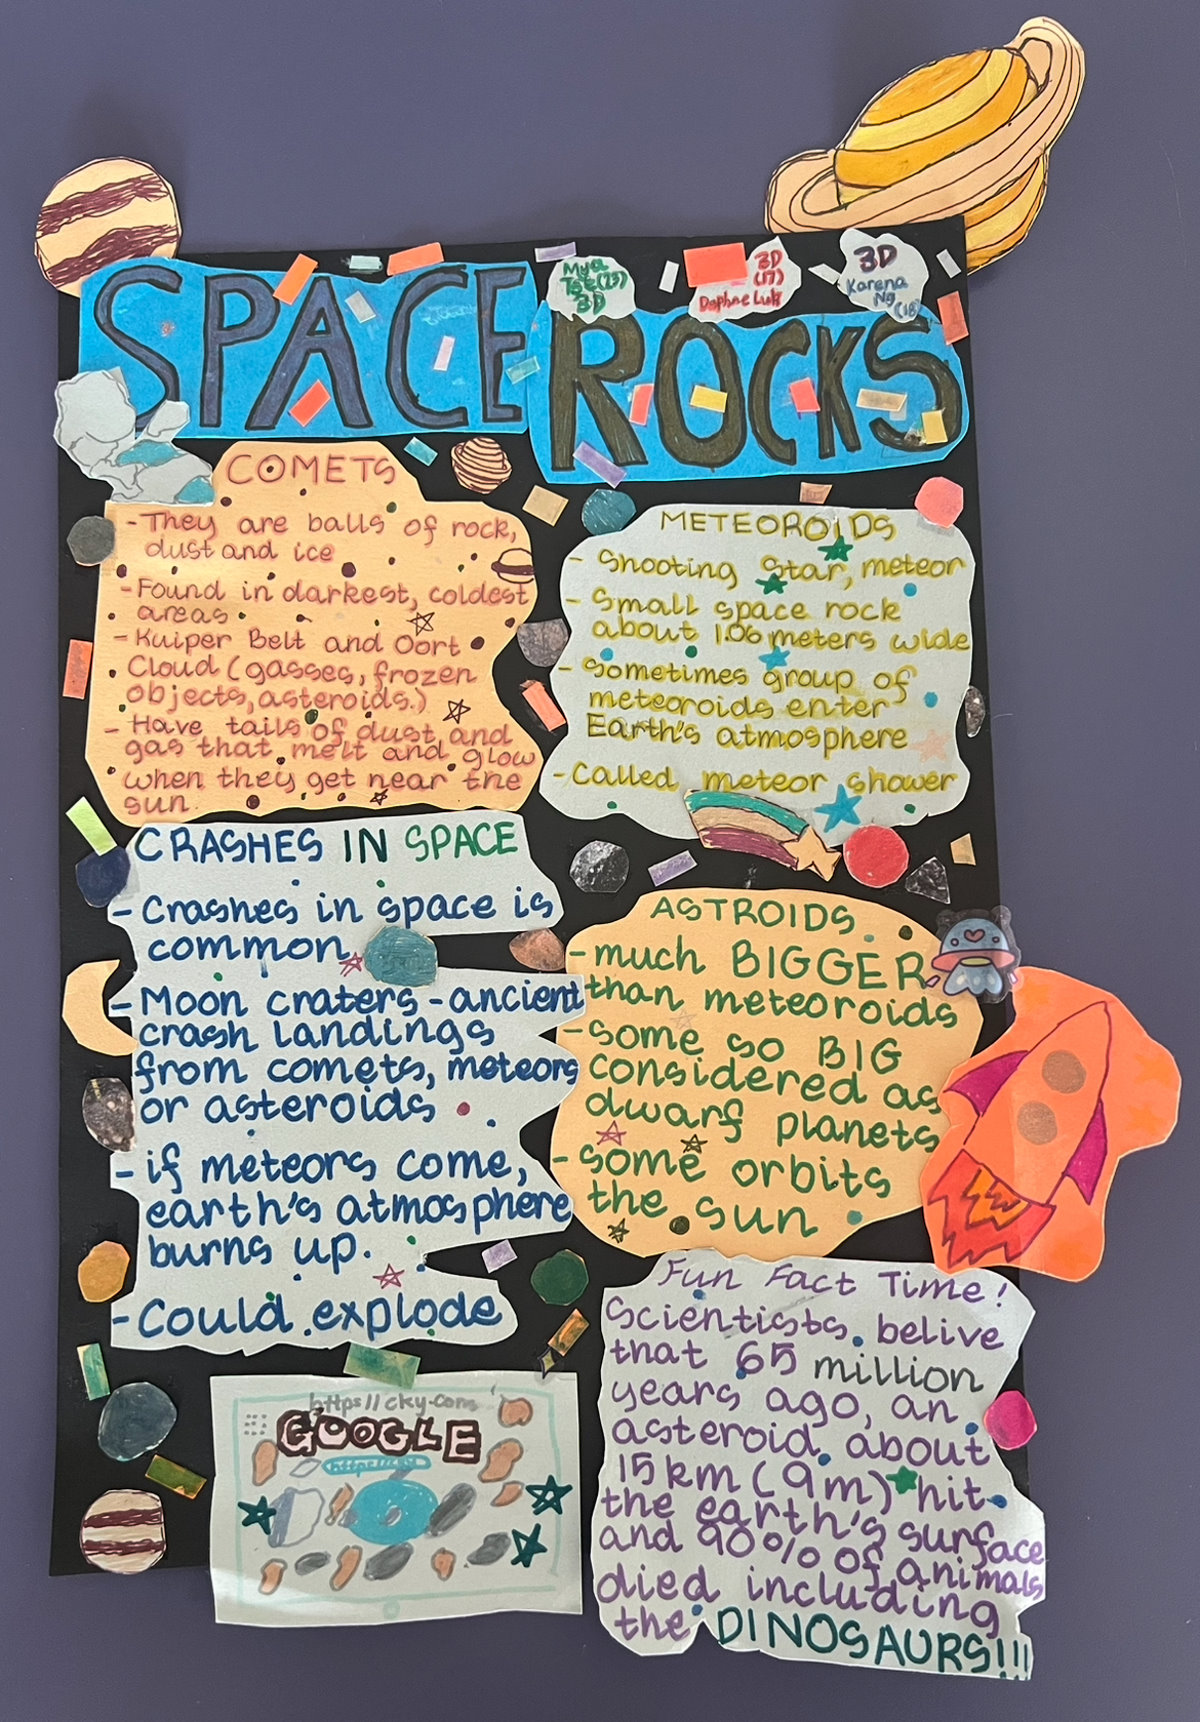 SPACE
ROCKS
Mya
Tse(23)
3D
3D
(17)
Daphne Luk
3D
Karena
Ng
(18)
COMETS
-They are balls of rock,
dust and ice
-Found in darkest, coldest
areas
-Kuiper Belt and Oort
Cloud (gasses, frozen
objects, asteroids.)
-Have tails of dust and
gas that melt and glow
when they get near the
sun
METEOROIDS
- Shooting Star, meteor
- Small space rock
about 1.06 meters wide
-Sometimes group of
meteoroids enter
Earth's atmosphere
-Called meteor shower
CRASHES IN SPACE
-Crashes in space is
common.
-Moon craters -ancient
crash landings
from comets, meteors
or asteroids
-if meteors come,
earth's atmosphere
burns up.
-Could explode
ASTROIDS
-much BIGGER
than meteoroids
-some so BIG
considered as
dwarf planets
-some orbits
the sun
Fun Fact Time!
Scientists belive
that 65 million
years ago, an
asteroid about
15km (9m) hit
the earth's surface
and 90% of animals
died including
the DINOSAURS!!!
https//cky.com
GOOGLE